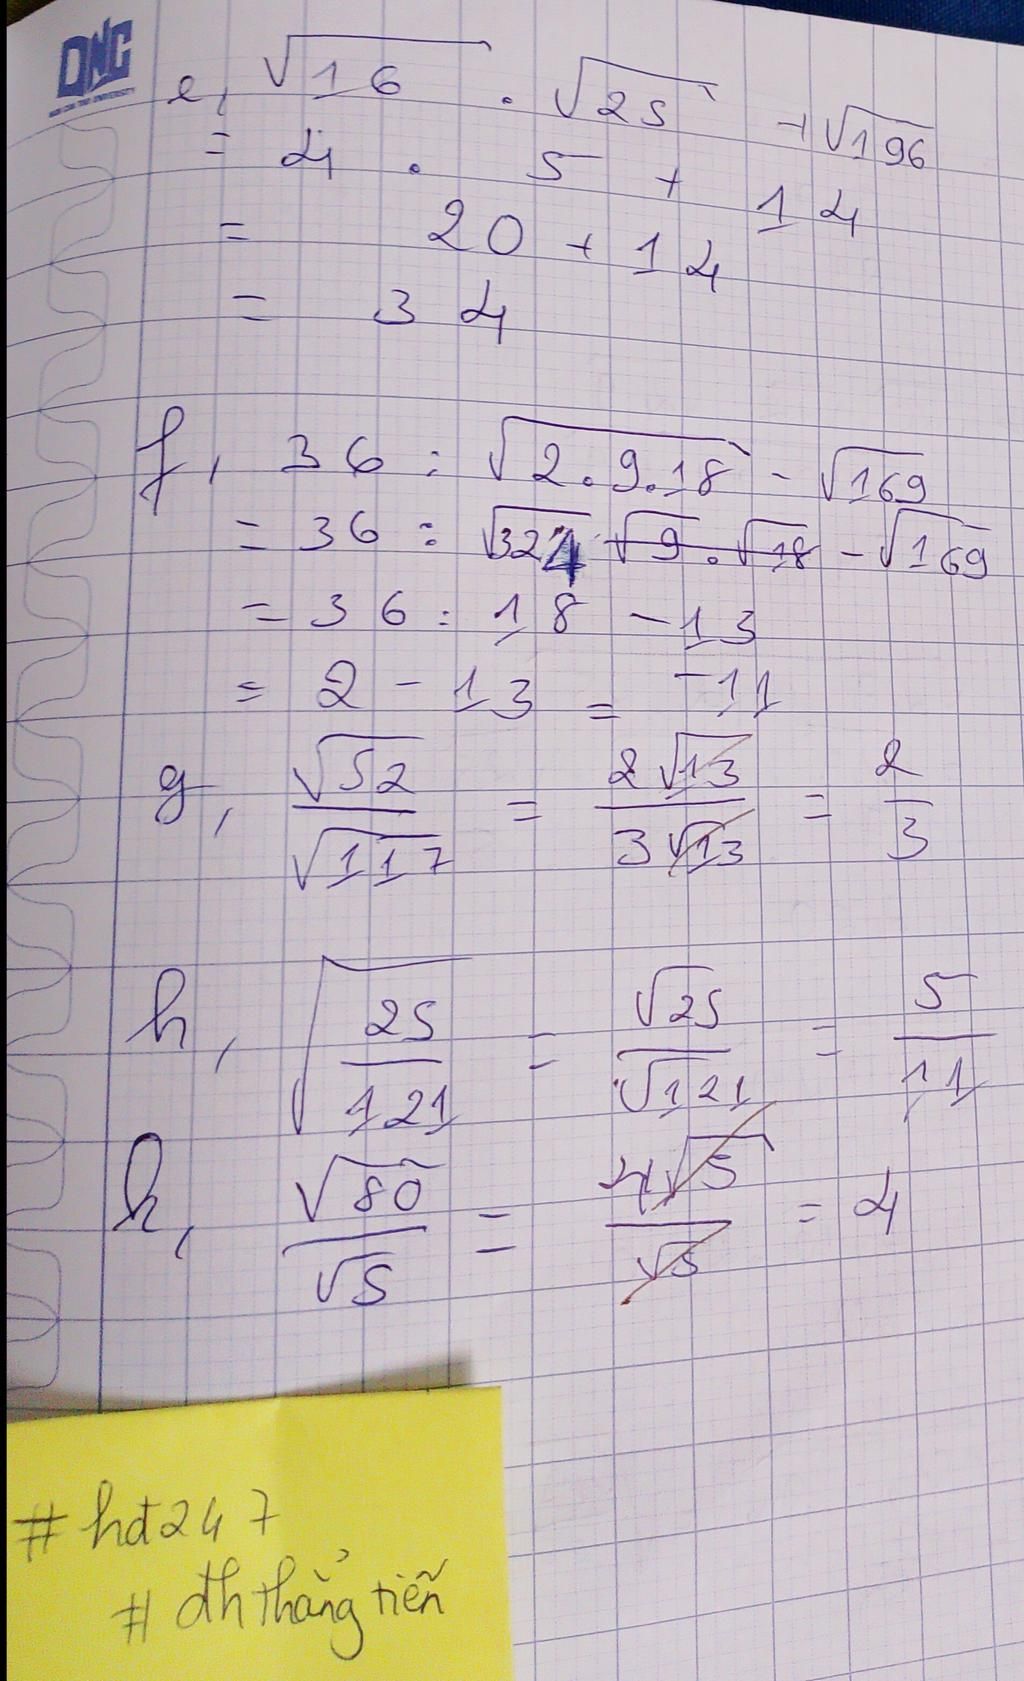 DNC
e, √16 . √25 + √196
= 4 . 5 + 14
= 20 + 14
= 34
f, 36 : √2.9.18 - √169
= 36 : √324 √9 . √18 - √169
= 36 : 18 - 13
= 2 - 13 = -11
g, √52/√117 = 2√13/3√13 = 2/3
h, √25/121 = √25/√121 = 5/11
k, √80/√5 = 4√5/√5 = 4
# hđ247
# đh thẳng tiến